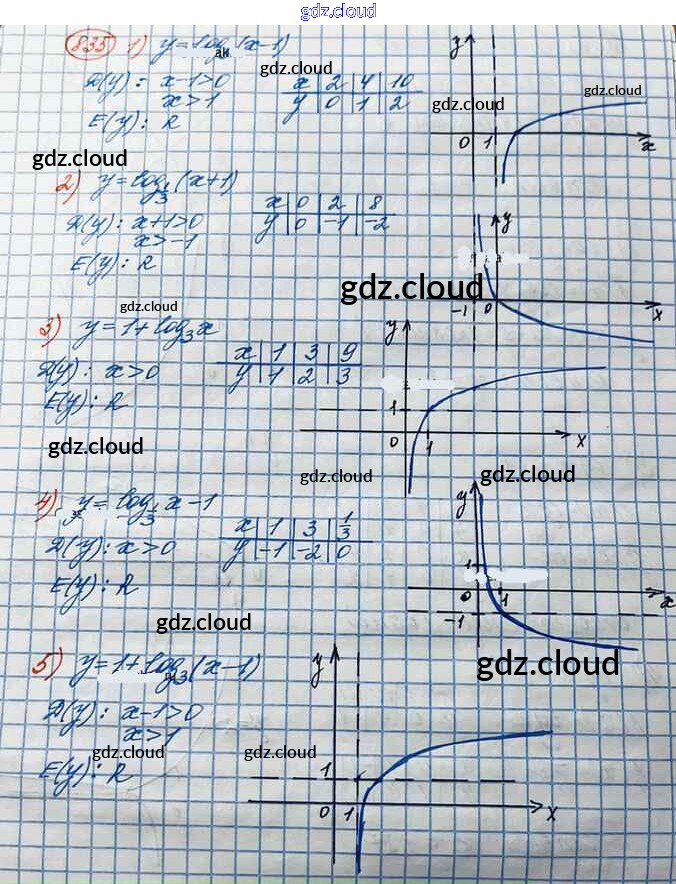 gdz.cloud
835 1) y = log (x-1)
D(y): x-1>0
x>1
E(y): R
x 2 4 10
y 0 1 2
y
0 1 x
gdz.cloud
gdz.cloud
gdz.cloud
gdz.cloud
2) y = log 1/3 (x+1)
D(y): x+1>0
x>-1
E(y): R
x 0 2 8
y 0 -1 -2
y
-1 0 x
gdz.cloud
gdz.cloud
3) y = 1+log₃x
D(y): x>0
E(y): R
x 1 3 9
y 1 2 3
y
1
0 1 x
gdz.cloud
gdz.cloud
gdz.cloud
4) y = log 1/3 x-1
D(y): x>0
E(y): R
x 1 3 1/3
y -1 -2 0
y
1
0 1 x
-1
gdz.cloud
gdz.cloud
5) y = 1+log₃(x-1)
D(y): x-1>0
x>1
E(y): R
y
1
0 1 x
gdz.cloud
gdz.cloud
gdz.cloud